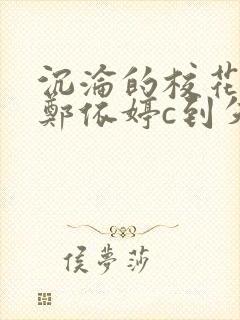 沉沦的校花
鄭依婷c到
侯夢莎